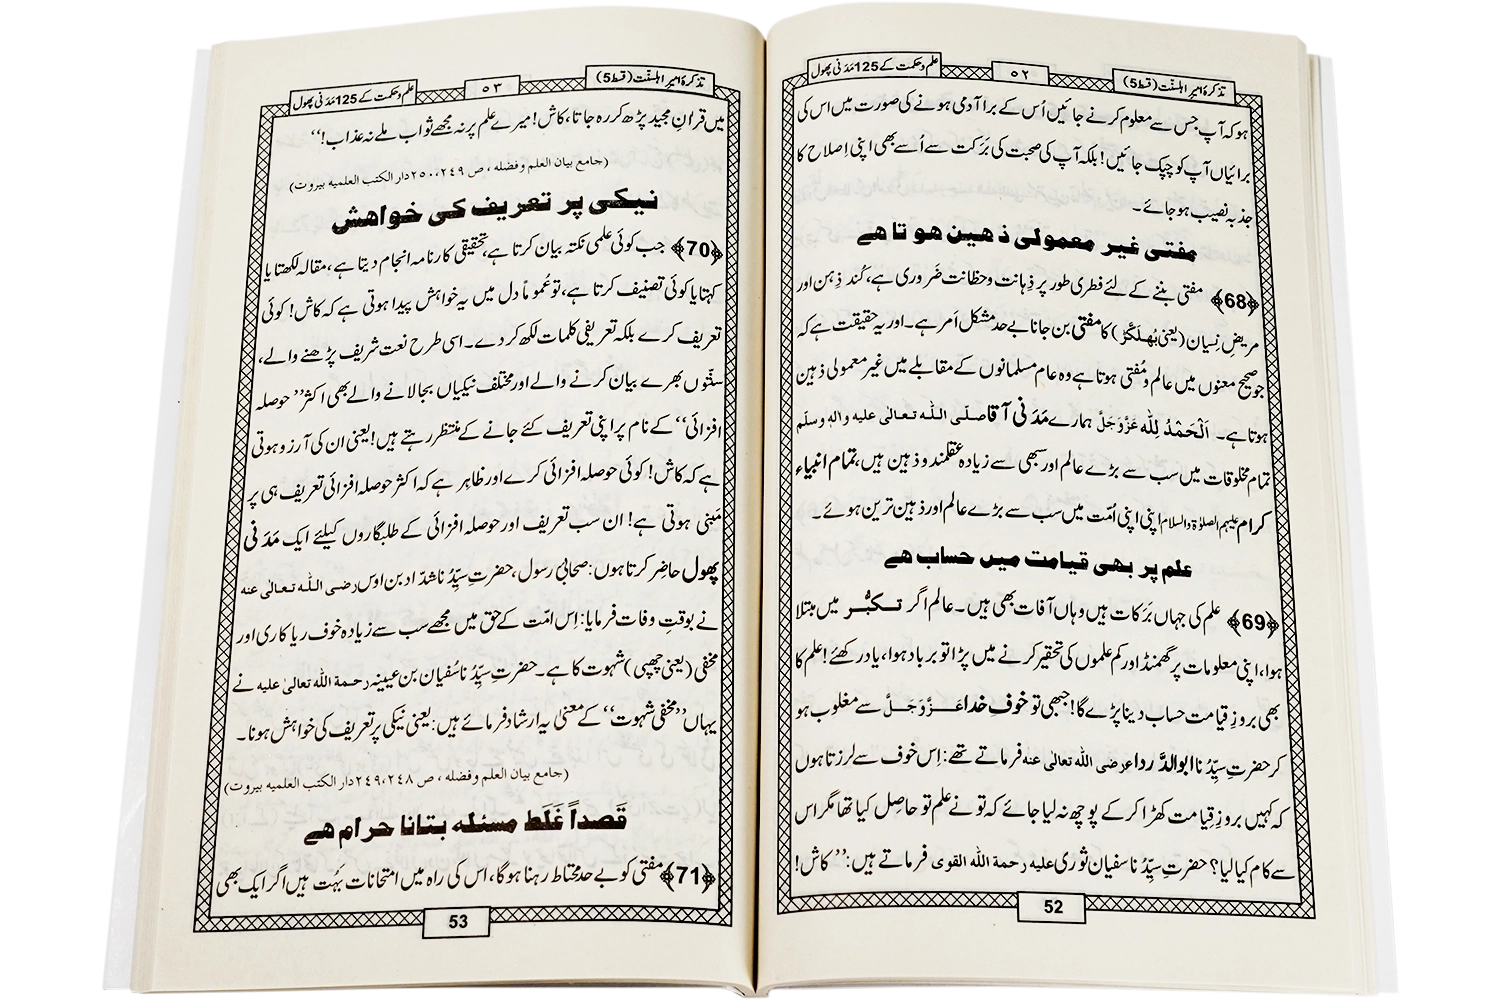 تذکرۂ امیرِ اہلسنّت (قسط 5)
۵۲
علم و حکمت کے 125 مَدَنی پھول
ہو کہ آپ جس سے معلوم کرنے جائیں اُس کے برا آدمی ہونے کی صورت میں اس کی
برائیاں آپ کو چپک جائیں! بلکہ آپ کی صحبت کی بَرَکت سے اُسے بھی اپنی اِصلاح کا
جذبہ نصیب ہو جائے۔
مفتی غیر معمولی ذہین ہوتا ہے
﴿68﴾ مفتی بننے کے لئے فطری طور پر ذِہانت وحفظانت ضَروری ہے، کُند ذِہن اور
مریضِ نِسیان (یعنی بُھلَکَّڑ) کا مفتی بن جانا بے حد مشکل اَمر ہے۔ اور یہ حقیقت ہے کہ
جو صحیح معنوں میں عالم و مُفتی ہوتا ہے وہ عام مسلمانوں کے مقابلے میں غیر معمولی ذہین
ہوتا ہے۔ اَلْحَمْدُ لِلّٰہ عَزَّوَجَلَّ ہمارے مَدَنی آقا صلَّی اللہ تعالٰی علیہ والہٖ وسلَّم
تمام مخلوقات میں سب سے بڑے عالم اور سبھی سے زیادہ عقلمند و ذہین ہیں، تمام انبیاء
کرام علیہم الصلوٰۃ والسلام اپنی اپنی امّت میں سب سے بڑے عالم اور ذہین ترین ہوئے۔
علم پر بھی قیامت میں حساب ہے
﴿69﴾ علم کی جہاں بَرَکات ہیں وہاں آفات بھی ہیں۔ عالم اگر تکبُّر میں مبتلا
ہوا، اپنی معلومات پر گھمنڈ اور کم علموں کی تحقیر کرنے میں پڑا تو برباد ہوا، یاد رکھئے! علم کا
بھی بروزِ قیامت حساب دینا پڑے گا! جبھی تو خوفِ خدا عَزَّوَجَلَّ سے مغلوب ہو
کر حضرتِ سیِّدُنا ابو الدَّرداء رضی اللہ تعالٰی عنہ فرماتے تھے: اِس خوف سے لرزتا ہوں
کہ کہیں بروزِ قِیامت کھڑا کر کے پوچھ نہ لیا جائے کہ تو نے علم تو حاصِل کیا تھا مگر اس
سے کام کیا لیا؟ حضرتِ سیِّدُنا سفیان ثوری علیہ رحمۃ اللہ القوی فرماتے ہیں: ’’کاش!
52
تذکرۂ امیرِ اہلسنّت (قسط 5)
۵۳
علم و حکمت کے 125 مَدَنی پھول
میں قراٰنِ مجید پڑھ کر رہ جاتا، کاش! میرے علم پر نہ مجھے ثواب ملے نہ عذاب!‘‘
(جامع بیان العلم وفضلہ، ص ۲۴۹،۲۵۰ دار الکتب العلمیہ بیروت)
نیکی پر تعریف کی خواہش
﴿70﴾ جب کوئی علمی نکتہ بیان کرتا ہے، تحقیقی کارنامہ انجام دیتا ہے، مقالہ لکھتا یا
کہتا یا کوئی تصنیف کرتا ہے، تو عُموماً دل میں یہ خواہش پیدا ہوتی ہے کہ کاش! کوئی
تعریف کرے بلکہ تعریفی کلمات لکھ کر دے۔ اسی طرح نعت شریف پڑھنے والے،
سنّتوں بھرے بیان کرنے والے اور مختلف نیکیاں بجا لانے والے بھی اکثر ’’حوصلہ
افزائی‘‘ کے نام پر اپنی تعریف کئے جانے کے منتظر رہتے ہیں! یعنی ان کی آرزو ہوتی
ہے کہ کاش! کوئی حوصلہ افزائی کرے اور ظاہر ہے کہ اکثر حوصلہ افزائی تعریف ہی پر
مَبنی ہوتی ہے! ان سب تعریف اور حوصلہ افزائی کے طلبگاروں کیلئے ایک مَدَنی
پھول حاضِر کرتا ہوں: صحابیِ رسول، حضرتِ سیِّدُنا شدّاد بن اوس رضی اللہ تعالٰی عنہ
نے بوقتِ وفات فرمایا: اِس امّت کے حق میں مجھے سب سے زیادہ خوف ریاکاری اور
مخفی (یعنی چھپی) شہوت کا ہے۔ حضرتِ سیِّدُنا سُفیان بن عیینہ رحمۃ اللہ تعالٰی علیہ نے
یہاں ’’مخفی شہوت‘‘ کے معنیٰ یہ ارشاد فرمائے ہیں: یعنی نیکی پر تعریف کی خواہش ہونا۔
(جامع بیان العلم وفضلہ، ص ۲۴۸،۲۴۹ دار الکتب العلمیہ بیروت)
قَصداً غَلَط مسئلہ بتانا حرام ہے
﴿71﴾ مفتی کو بے حد محتاط رہنا ہوگا، اس کی راہ میں امتحانات بَہُت ہیں اگر ایک بھی
53